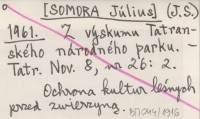 [SOMORA Július] (J.S.)
1961. Z výskumu Tatran-
ského národného parku. -
Tatr. Nov. 8, nr 26: 2.
Ochrona kultur leśnych
przed zwierzyną.